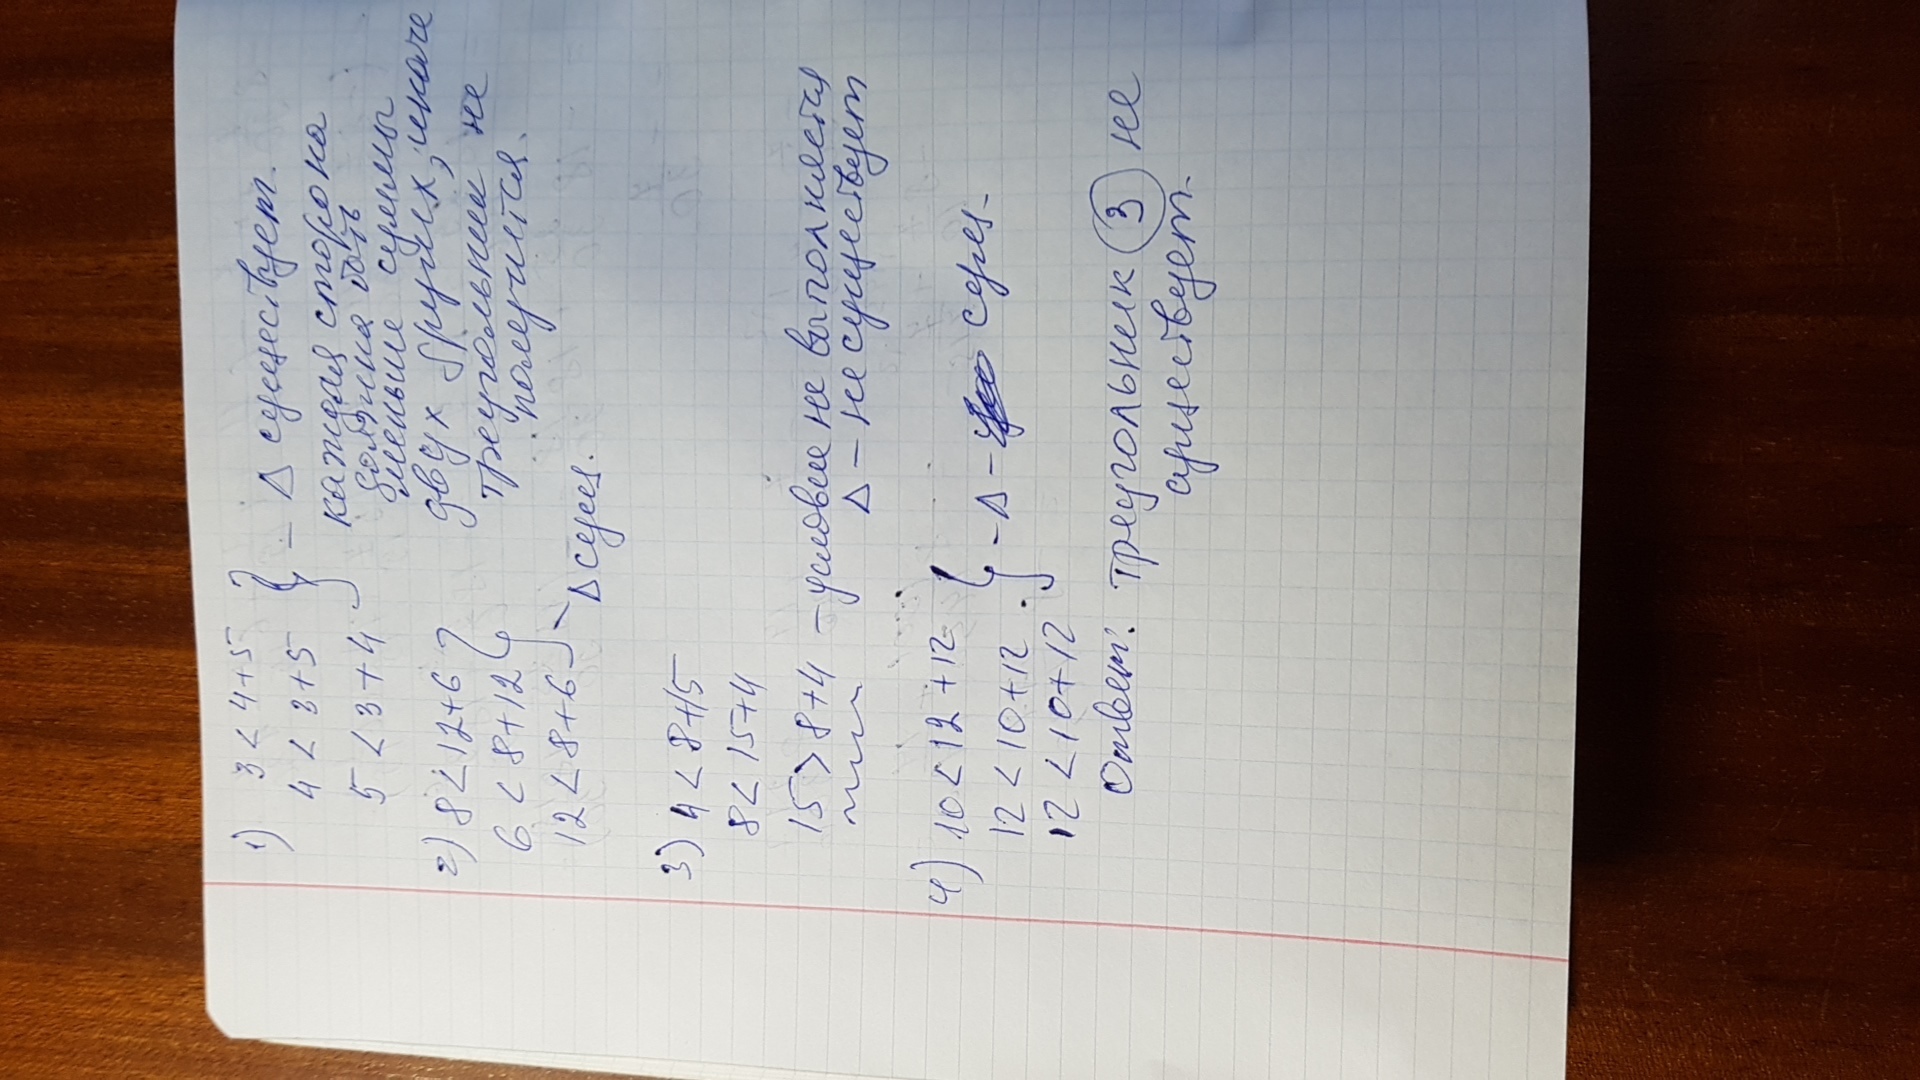 1) 3 < 4+5
4 < 3+5 } – Δ существует.
5 < 3+4
каждая сторона
должна быть
меньше суммы
двух других, иначе
треугольник не
получится.
2) 8 < 12+6
6 < 8+12
12 < 8+6 } – Δ сущ.
3) 4 < 8+15
8 < 15+4
15 > 8+4 – условие не выполняется
Δ – не существует
4) 10 < 12+12
12 < 10+12 } – Δ – сущ.
12 < 10+12
Ответ: треугольник 3 не
существует.